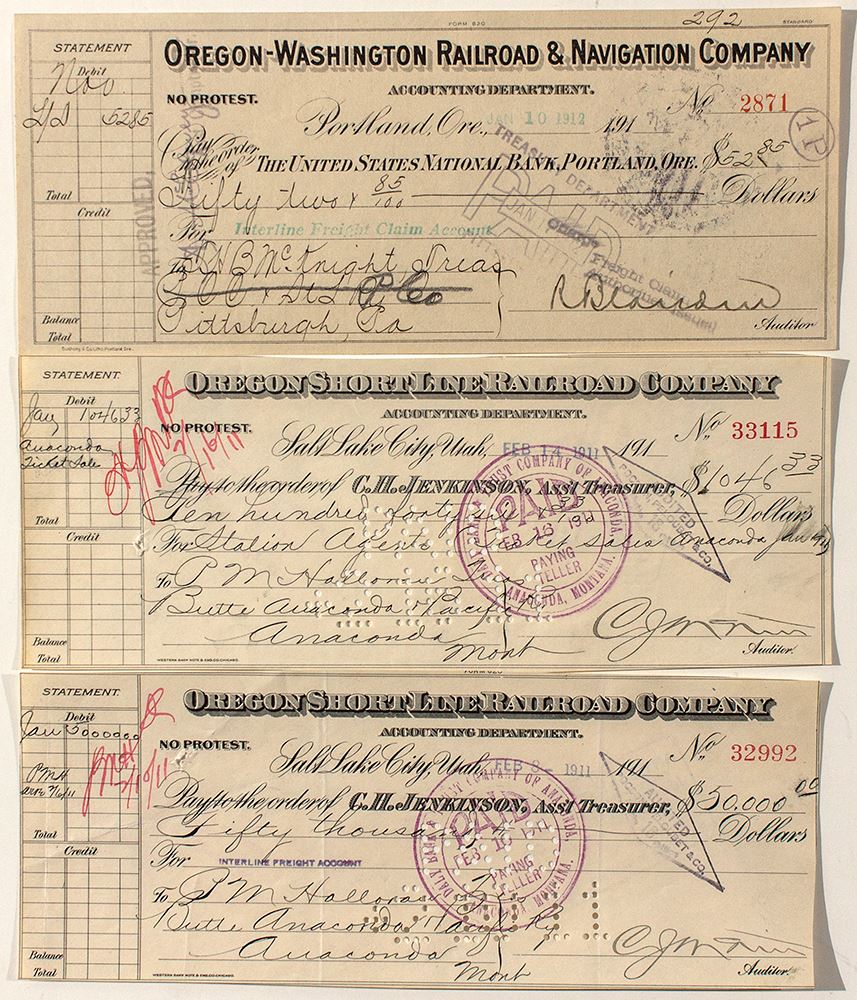 FORM 820
292
STANDARD
STATEMENT
OREGON-WASHINGTON RAILROAD & NAVIGATION COMPANY
Debit
Nov
NO PROTEST.
ACCOUNTING DEPARTMENT.
No 2871
1P
L/D 5285
Portland, Ore., JAN 10 1912 191
Pay to the order of THE UNITED STATES NATIONAL BANK, PORTLAND, ORE. $52.85
TREASURY DEPARTMENT
PAID
JAN
Total
Fifty two & 85/100 Dollars
Credit
For Interline Freight Claim Account
APPROVED,
Freight Claim
To H B McKnight, Treas
P Co
Pittsburgh, Pa
Auditor
Balance
Total
STATEMENT.
OREGON SHORT LINE RAILROAD COMPANY
Debit
Jan 1046 33
ACCOUNTING DEPARTMENT.
NO PROTEST.
No 33115
Anaconda
Ticket Sales
2/16/11
Salt Lake City, Utah, FEB 14 1911 191
Pay to the order of C.H. JENKINSON, Asst Treasurer, $1046 33
Total
Ten hundred forty six & 33 Dollars
Credit
For Station Agents Ticket sales Anaconda Jan
DALY BANK & TRUST COMPANY OF ANACONDA,
PAID
FEB 16 1911
PAYING
TELLER
ANACONDA, MONTANA.
AUDITED
& CO.
To P M Halloran Treas
Butte Anaconda & Pacific
Anaconda
Mont
Auditor.
Balance
Total
WESTERN BANK NOTE & ENG. CO. CHICAGO.
FORM 820
STATEMENT.
OREGON SHORT LINE RAILROAD COMPANY
Debit
Jan 5000000
ACCOUNTING DEPARTMENT.
NO PROTEST.
No 32992
PMH
2/10/11
Salt Lake City, Utah, FEB 8 - 1911 191
Pay to the order of C.H. JENKINSON, Asst Treasurer, $50,000 00
Total
Fifty thousand Dollars
Credit
For INTERLINE FREIGHT ACCOUNT
DALY BANK & TRUST COMPANY OF ANACONDA,
PAID
FEB 10 1911
PAYING
TELLER
ANACONDA, MONTANA.
AUDITED
& CO.
To P M Halloran Treas
Butte Anaconda & Pacific Ry
Anaconda
Mont
Auditor.
Balance
Total
WESTERN BANK NOTE & ENG. CO. CHICAGO.